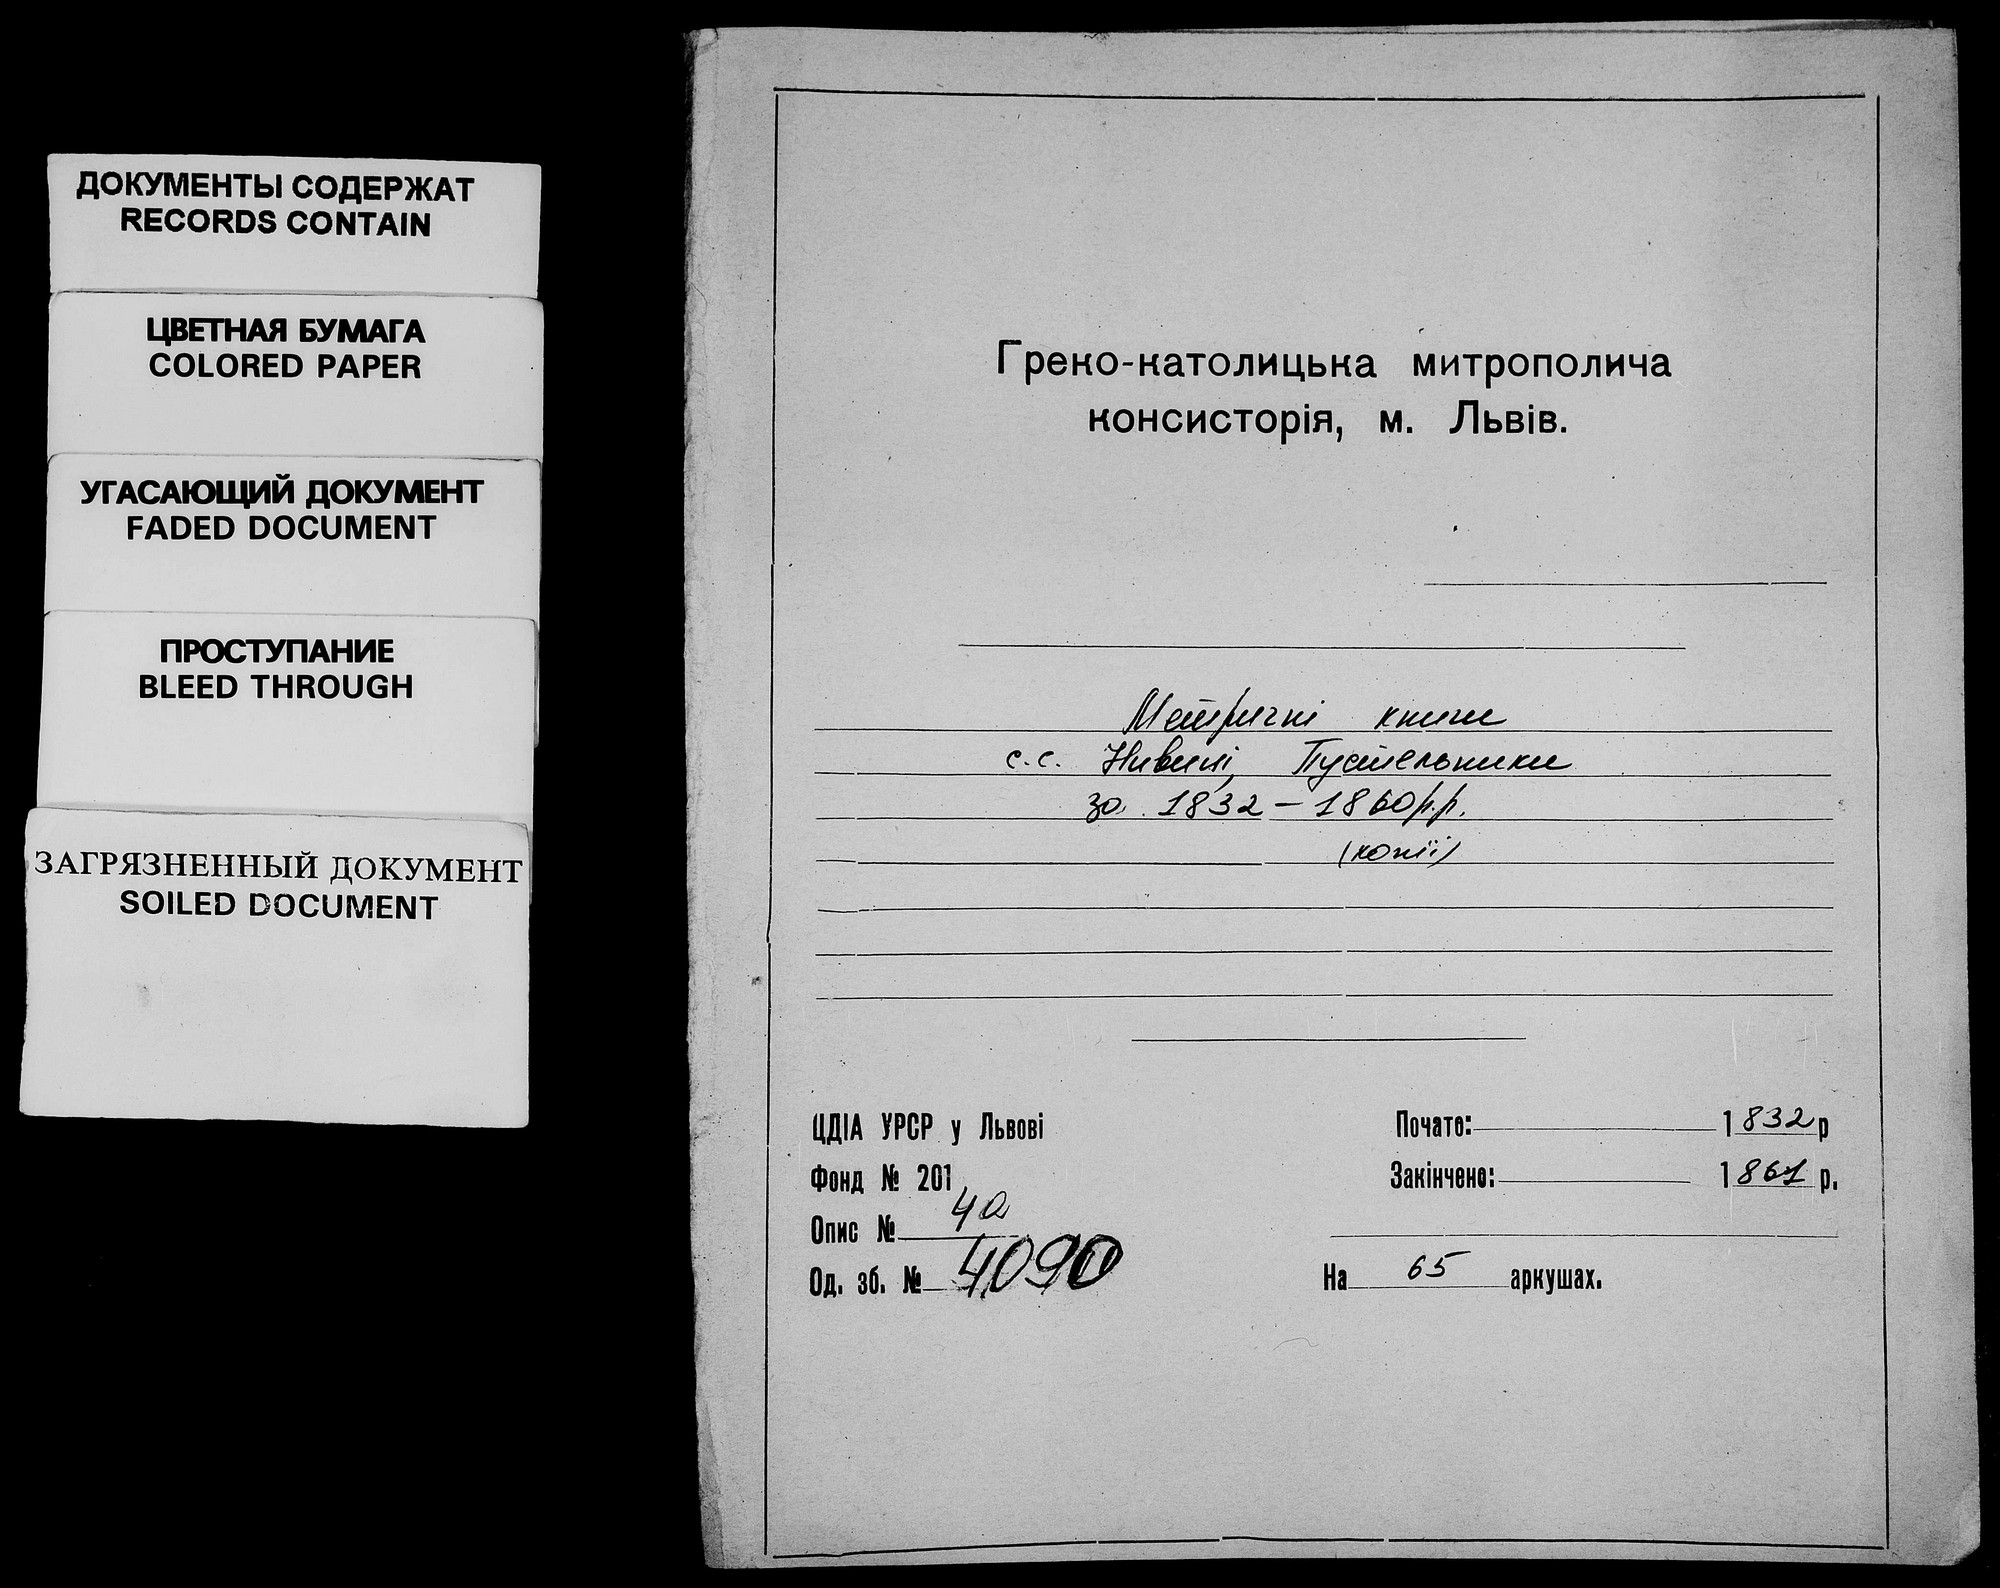 ДОКУМЕНТЫ СОДЕРЖАТ
RECORDS CONTAIN
ЦВЕТНАЯ БУМАГА
COLORED PAPER
УГАСАЮЩИЙ ДОКУМЕНТ
FADED DOCUMENT
ПРОСТУПАНИЕ
BLEED THROUGH
ЗАГРЯЗНЕННЫЙ ДОКУМЕНТ
SOILED DOCUMENT
Греко-католицька митрополича
консисторія, м. Львів.
Метричні книги
с.с. Нивиці, Пустельники
за 1832 – 1860 р.р.
(копії)
ЦДІА УРСР у Львові
Фонд № 201
Опис № 4а
Од. зб. № 4090
Почате: 1832 р
Закінчено: 1861 р.
На 65 аркушах.